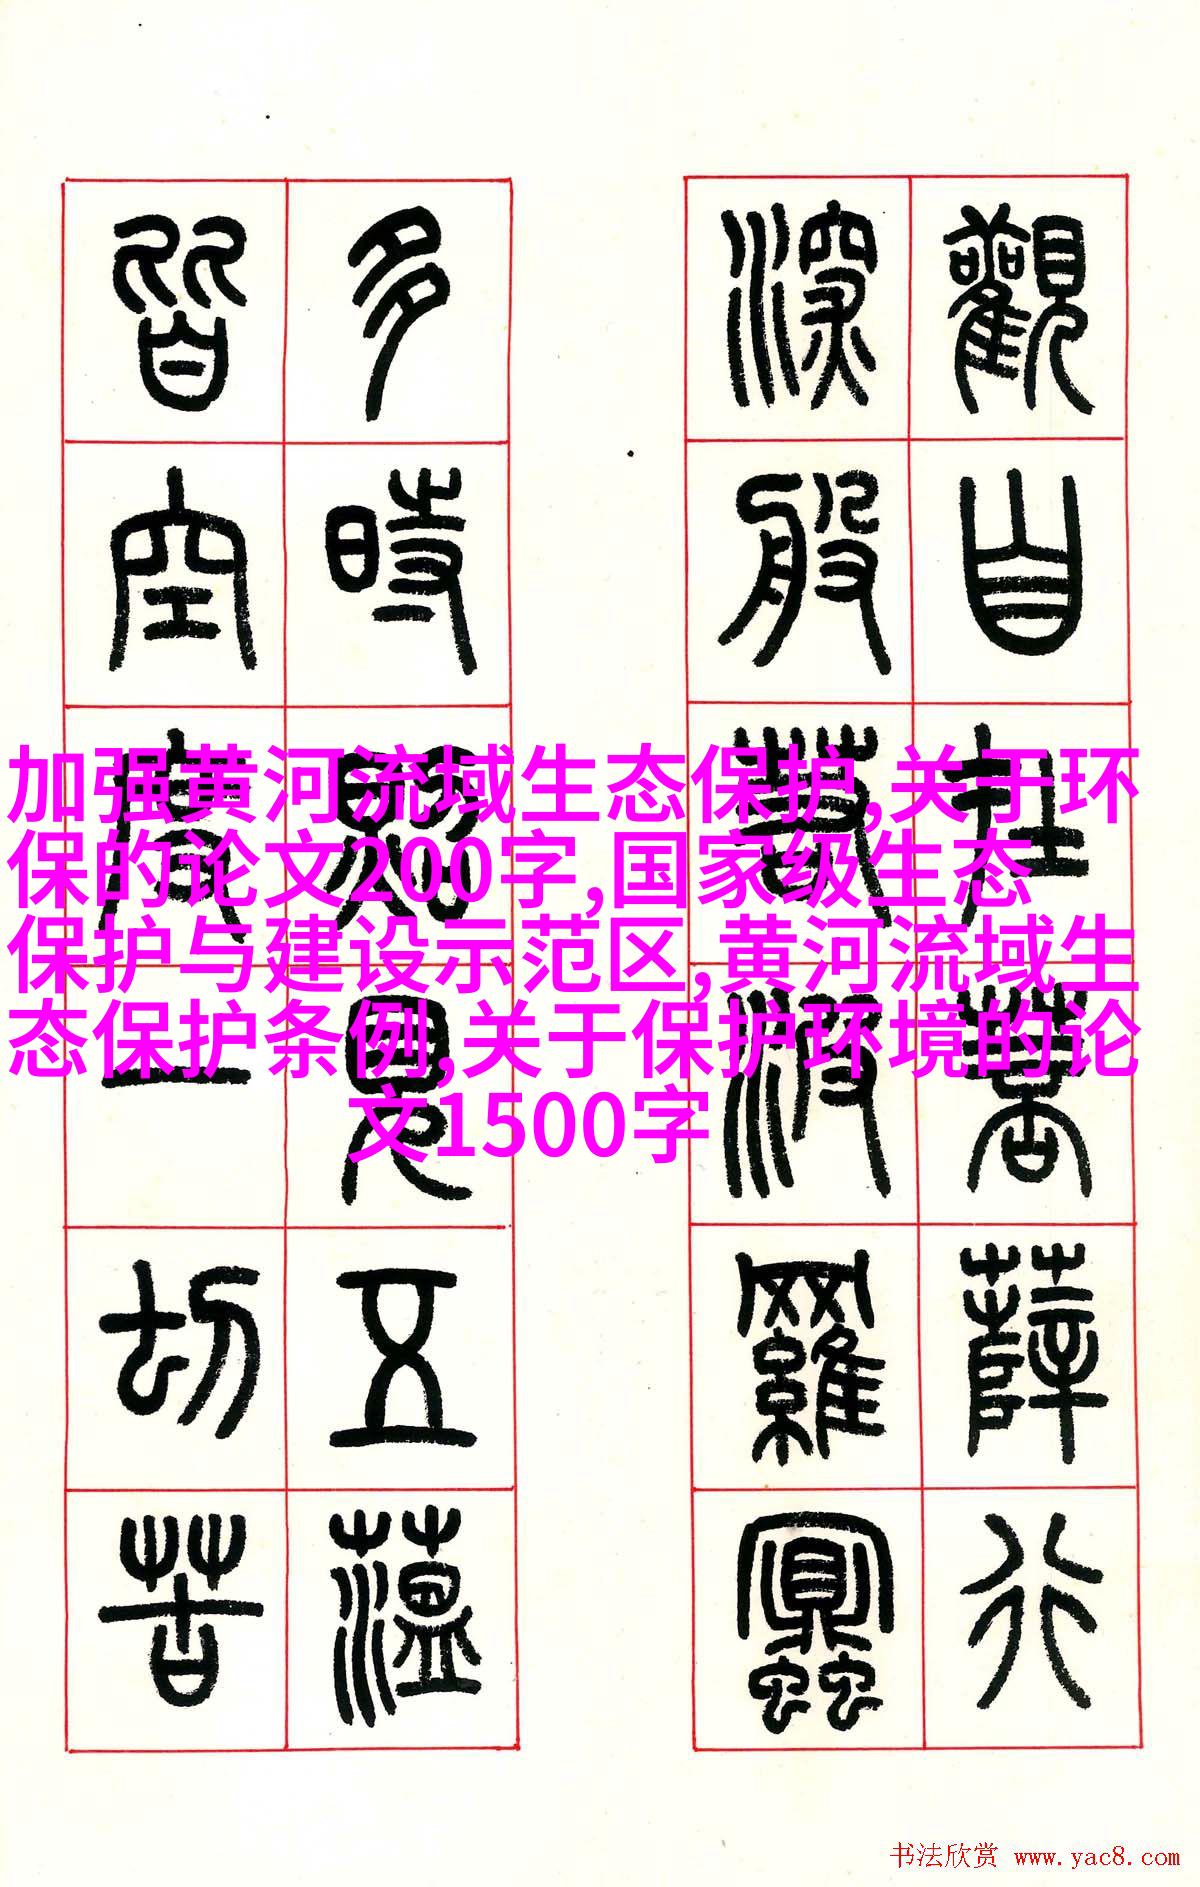 觀自在菩薩行
深般若波羅蜜
多時照見五蘊
皆空度一切苦
加强黄河流域生态保护,关于环
保的论文200字,国家级生态
保护与建设示范区,黄河流域生
态保护条例,关于保护环境的论
文1500字
书法欣赏 www.yac8.com